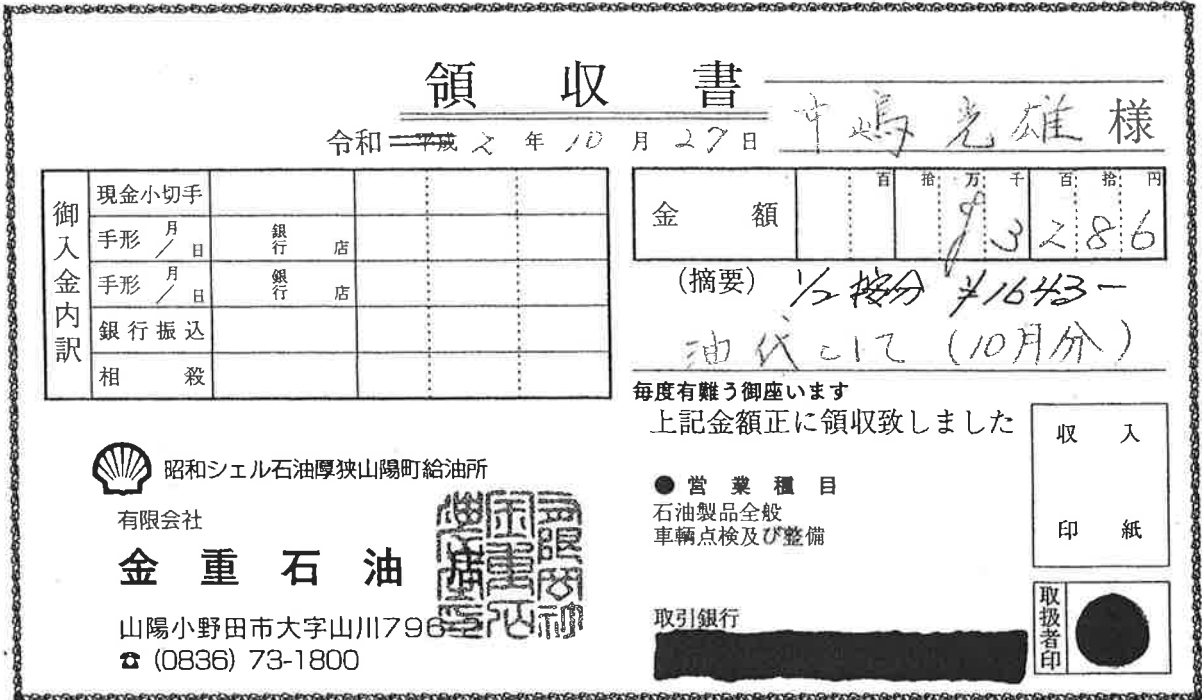 領収書
中嶋光雄 様
令和 平成 2 年 10 月 27 日
御入金内訳
現金小切手
手形 月/日 銀行 店
手形 月/日 銀行 店
銀行振込
相殺
金額 百拾万千百拾円
¥3286
(摘要) 1/2 按分 ¥1643-
油代として (10月分)
毎度有難う御座います
上記金額正に領収致しました
収入
印紙
昭和シェル石油厚狭山陽町給油所
有限会社
金重石油
山陽小野田市大字山川796-2
☎ (0836) 73-1800
●営業種目
石油製品全般
車輌点検及び整備
取引銀行
取扱者印